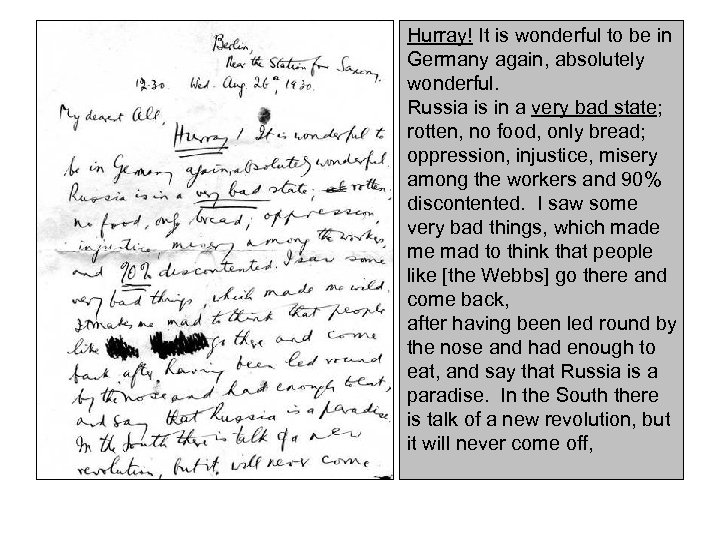 Berlin,
Near the Station for Saxony,
12.30. Wed. Aug. 26th, 1930.
My dearest All,
Hurray! It is wonderful to
be in Germany again, absolutely wonderful.
Russia is in a very bad state; rotten,
no food, only bread; oppression,
injustice, misery among the workers
and 90% discontented. I saw some
very bad things, which made me wild,
It makes me mad to think that people
like go there and come
back, after having been led round
by the nose and had enough to eat,
and say that Russia is a paradise.
In the South there is talk of a new
revolution, but it will never come
Hurray! It is wonderful to be in
Germany again, absolutely
wonderful.
Russia is in a very bad state;
rotten, no food, only bread;
oppression, injustice, misery
among the workers and 90%
discontented. I saw some
very bad things, which made
me mad to think that people
like [the Webbs] go there and
come back,
after having been led round by
the nose and had enough to
eat, and say that Russia is a
paradise. In the South there
is talk of a new revolution, but
it will never come off,